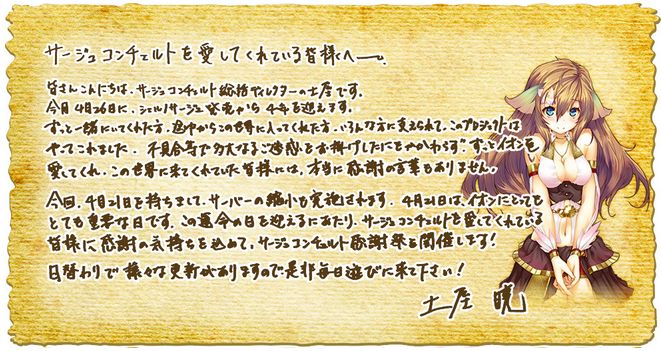 サージュコンチェルトを愛してくれている皆様へ――。
皆さんこんにちは、サージュコンチェルト総括ディレクターの土屋です。
今月4月26日に、シェルノサージュ発売から4年を迎えます。
ずっと一緒にいてくれた方、途中からこの世界に入ってくれた方、いろんな方に支えられて、このプロジェクトは
やってこれました。不具合等で多大なるご迷惑をお掛けしたにもかかわらず、ずっとイオンを
愛してくれ、この世界に来てくれていた皆様には、本当に感謝の言葉もありません。
今回、4月21日を持ちまして、サーバーの縮小も実施されます。4月21日は、イオンにとっても
とても重要な日です。この運命の日を迎えるにあたり、サージュコンチェルトを愛してくれている
皆様に感謝の気持ちを込めて、サージュコンチェルト感謝祭を開催します!
日替わりで様々な更新がありますので是非毎日遊びに来て下さい!
土屋 暁